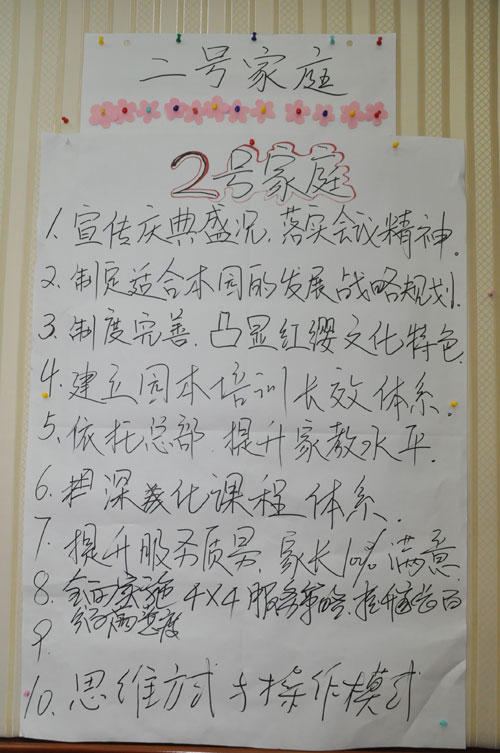 二号家庭
2号家庭
1、宣传庆典盛况，落实会议精神。
2、制定适合本园的发展战略规划.
3、制度完善，凸显红缨文化特色.
4、建立园本培训长效体系.
5、依托总部，提升家教水平.
6、深化课程体系.
7、提升服务质量，家长100%满意.
8、全面实施4×4服务策略，提升家长百
分百满意度
9、
10、思维方式与操作模式